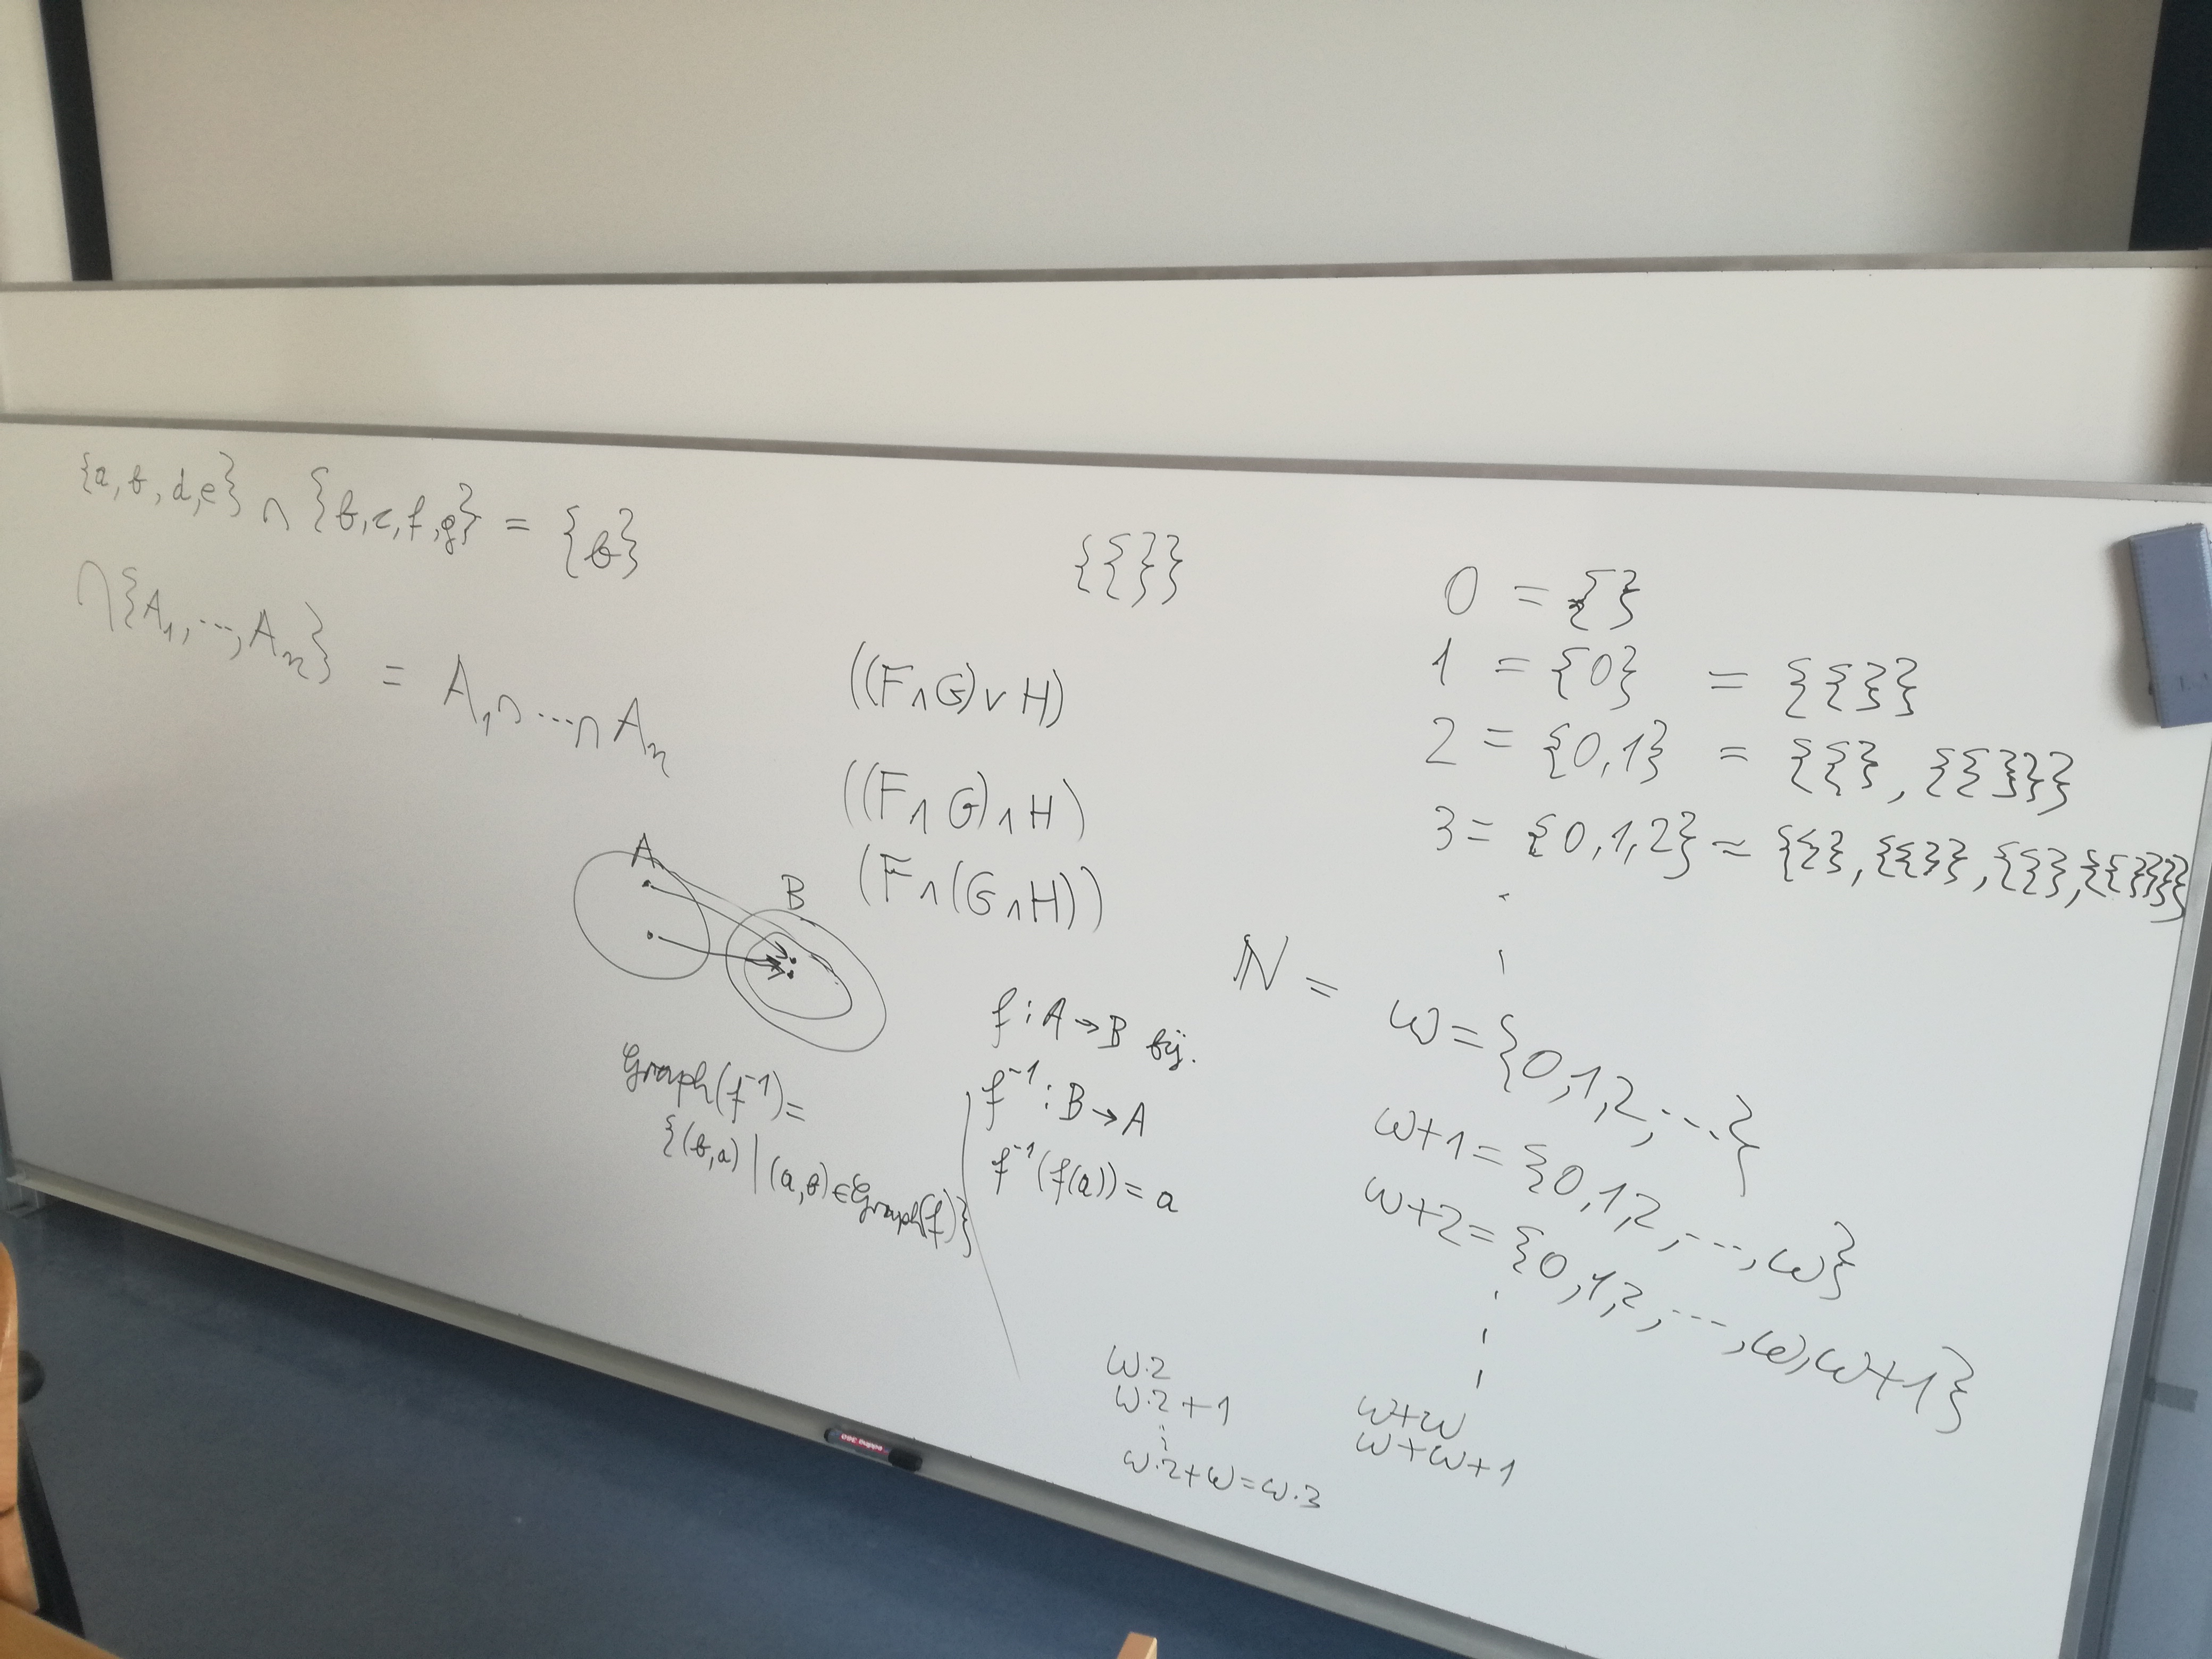 {a, b, d, e} ∩ {b, c, f, g} = {b}
∩{A₁, ..., Aₙ} = A₁ ∩ ... ∩ Aₙ
{{}}
((F ∧ G) ∨ H)
((F ∧ G) ∧ H)
(F ∧ (G ∧ H))
A
B
Graph(f⁻¹) =
{(b,a) | (a,b) ∈ Graph(f)}
f : A → B bij.
f⁻¹ : B → A
f⁻¹(f(a)) = a
0 = {}
1 = {0} = {{}}
2 = {0,1} = {{}, {{}}}
3 = {0,1,2} = {{}, {{}}, {{}, {{}}}}
ℕ = ω = {0,1,2, ...}
ω+1 = {0,1,2, ..., ω}
ω+2 = {0,1,2, ..., ω, ω+1}
ω+ω
ω+ω+1
ω·2
ω·2+1
⋮
ω·2+ω = ω·3